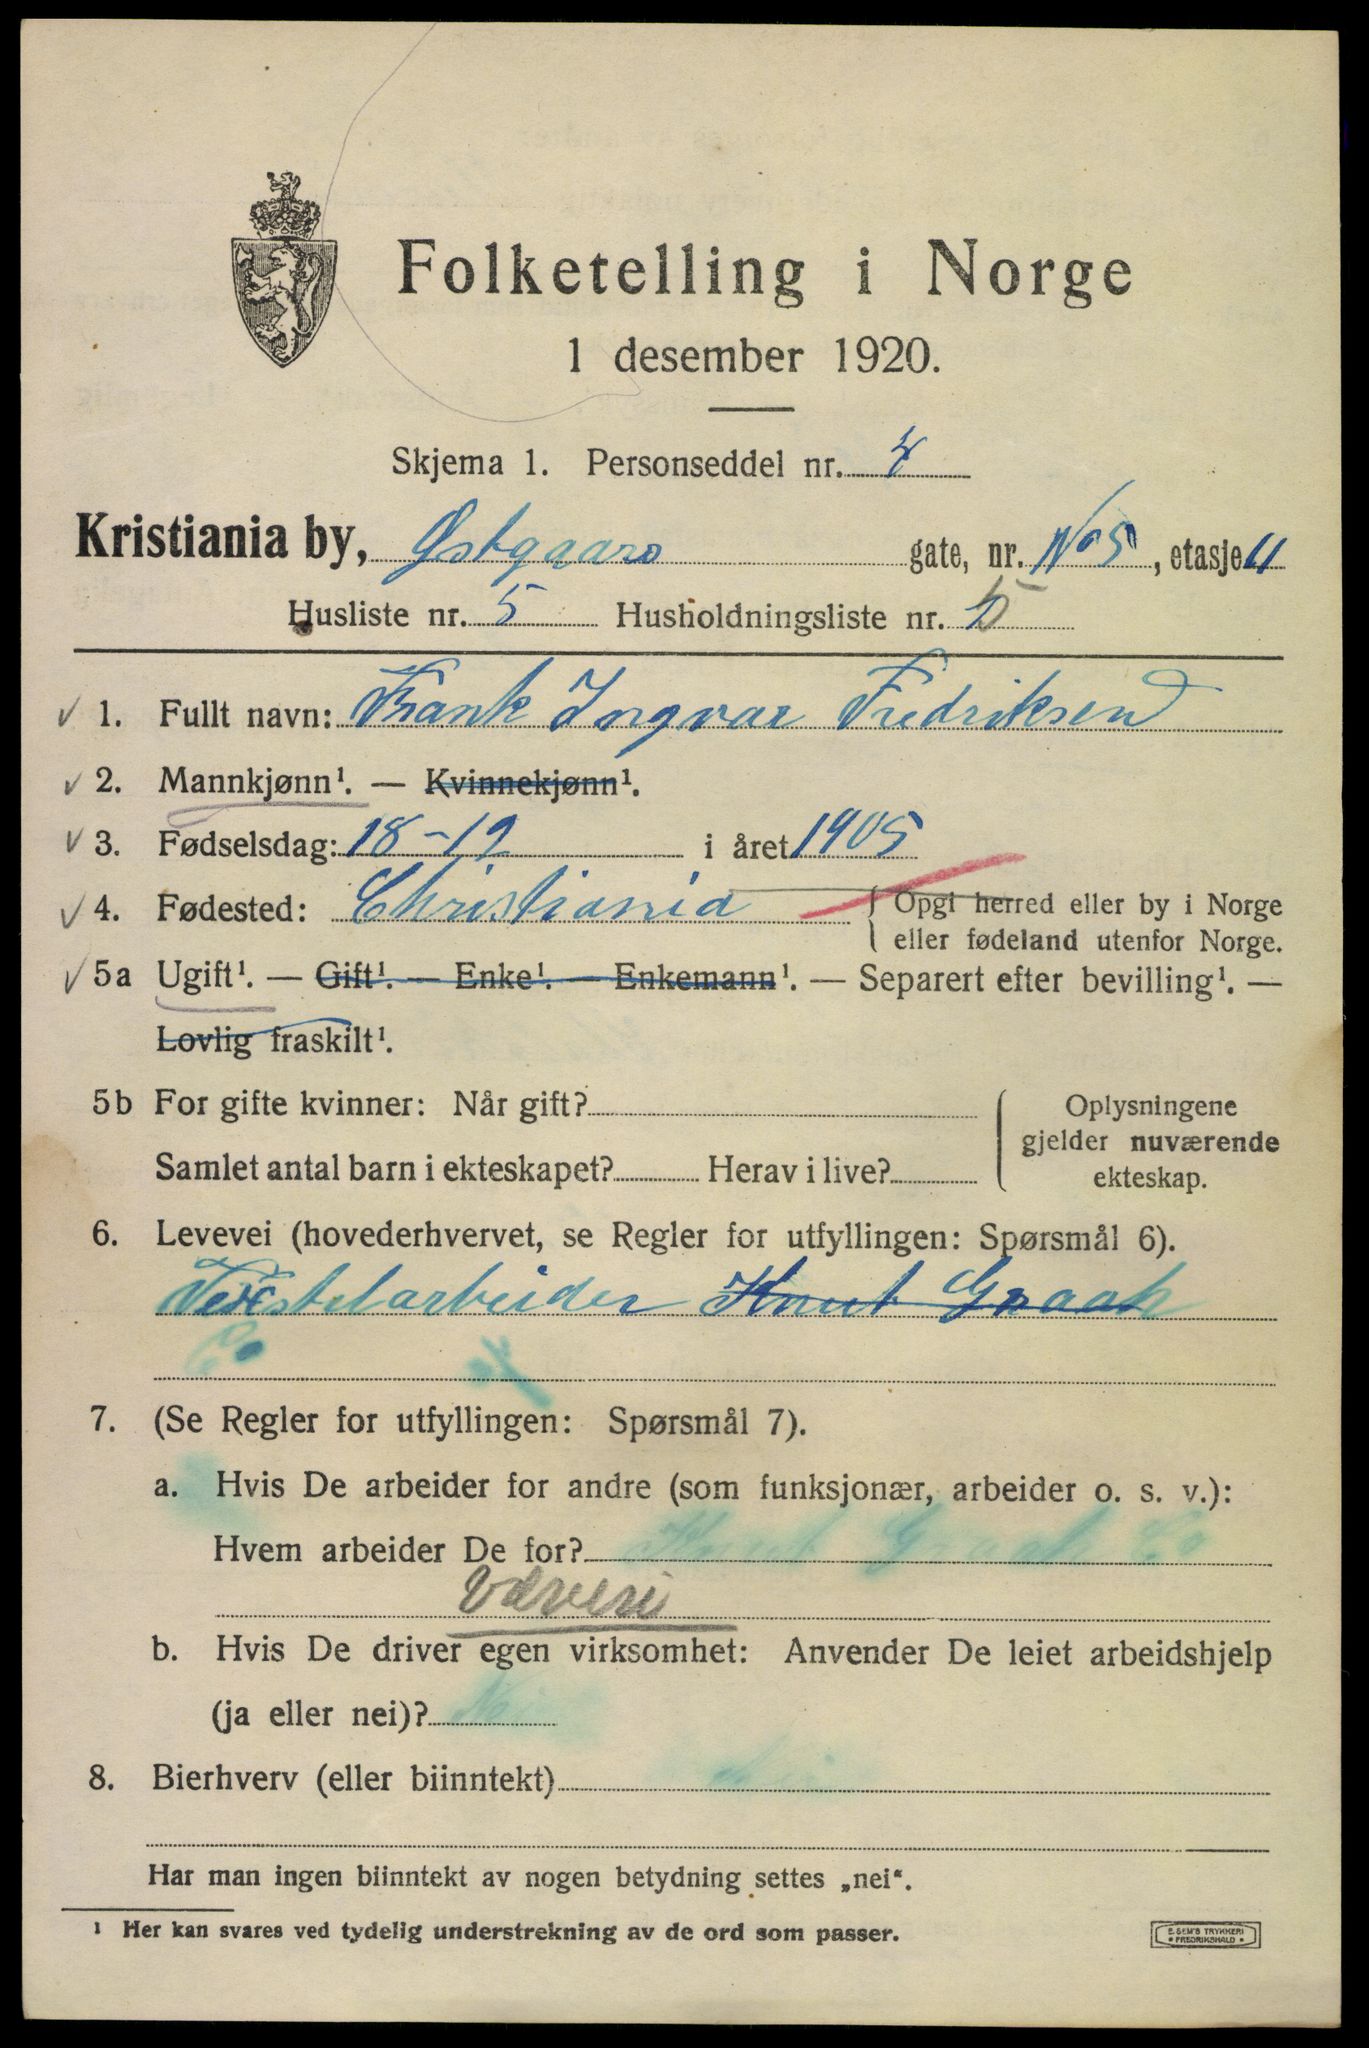 Folketelling i Norge
1 desember 1920.
Skjema 1. Personseddel nr. 4
Kristiania by, Østgaars gate, nr. No 5, etasje II
Husliste nr. 5 Husholdningsliste nr. 5
1. Fullt navn: Frank Ingvar Fredriksen
2. Mannkjønn¹. — Kvinnekjønn¹.
3. Fødselsdag: 18-12 i året 1905
4. Fødested: Christiania { Opgi herred eller by i Norge
eller fødeland utenfor Norge.
5a Ugift¹. — Gift¹. — Enke¹. — Enkemann¹. — Separert efter bevilling¹. —
Lovlig fraskilt¹.
5b For gifte kvinner: Når gift? Oplysningene
gjelder nuværende
Samlet antal barn i ekteskapet? Herav i live? ekteskap.
6. Levevei (hovederhvervet, se Regler for utfyllingen: Spørsmål 6).
arbeider Knut Graah
Co
7. (Se Regler for utfyllingen: Spørsmål 7).
a. Hvis De arbeider for andre (som funksjonær, arbeider o. s. v.):
Hvem arbeider De for? Knut Graah Co
Væveri
b. Hvis De driver egen virksomhet: Anvender De leiet arbeidshjelp
(ja eller nei)? Nei
8. Bierhverv (eller biinntekt) Nei
Har man ingen biinntekt av nogen betydning settes „nei“.
¹ Her kan svares ved tydelig understrekning av de ord som passer.
E. SEM'S TRYKKERI
• FREDRIKSHALD •